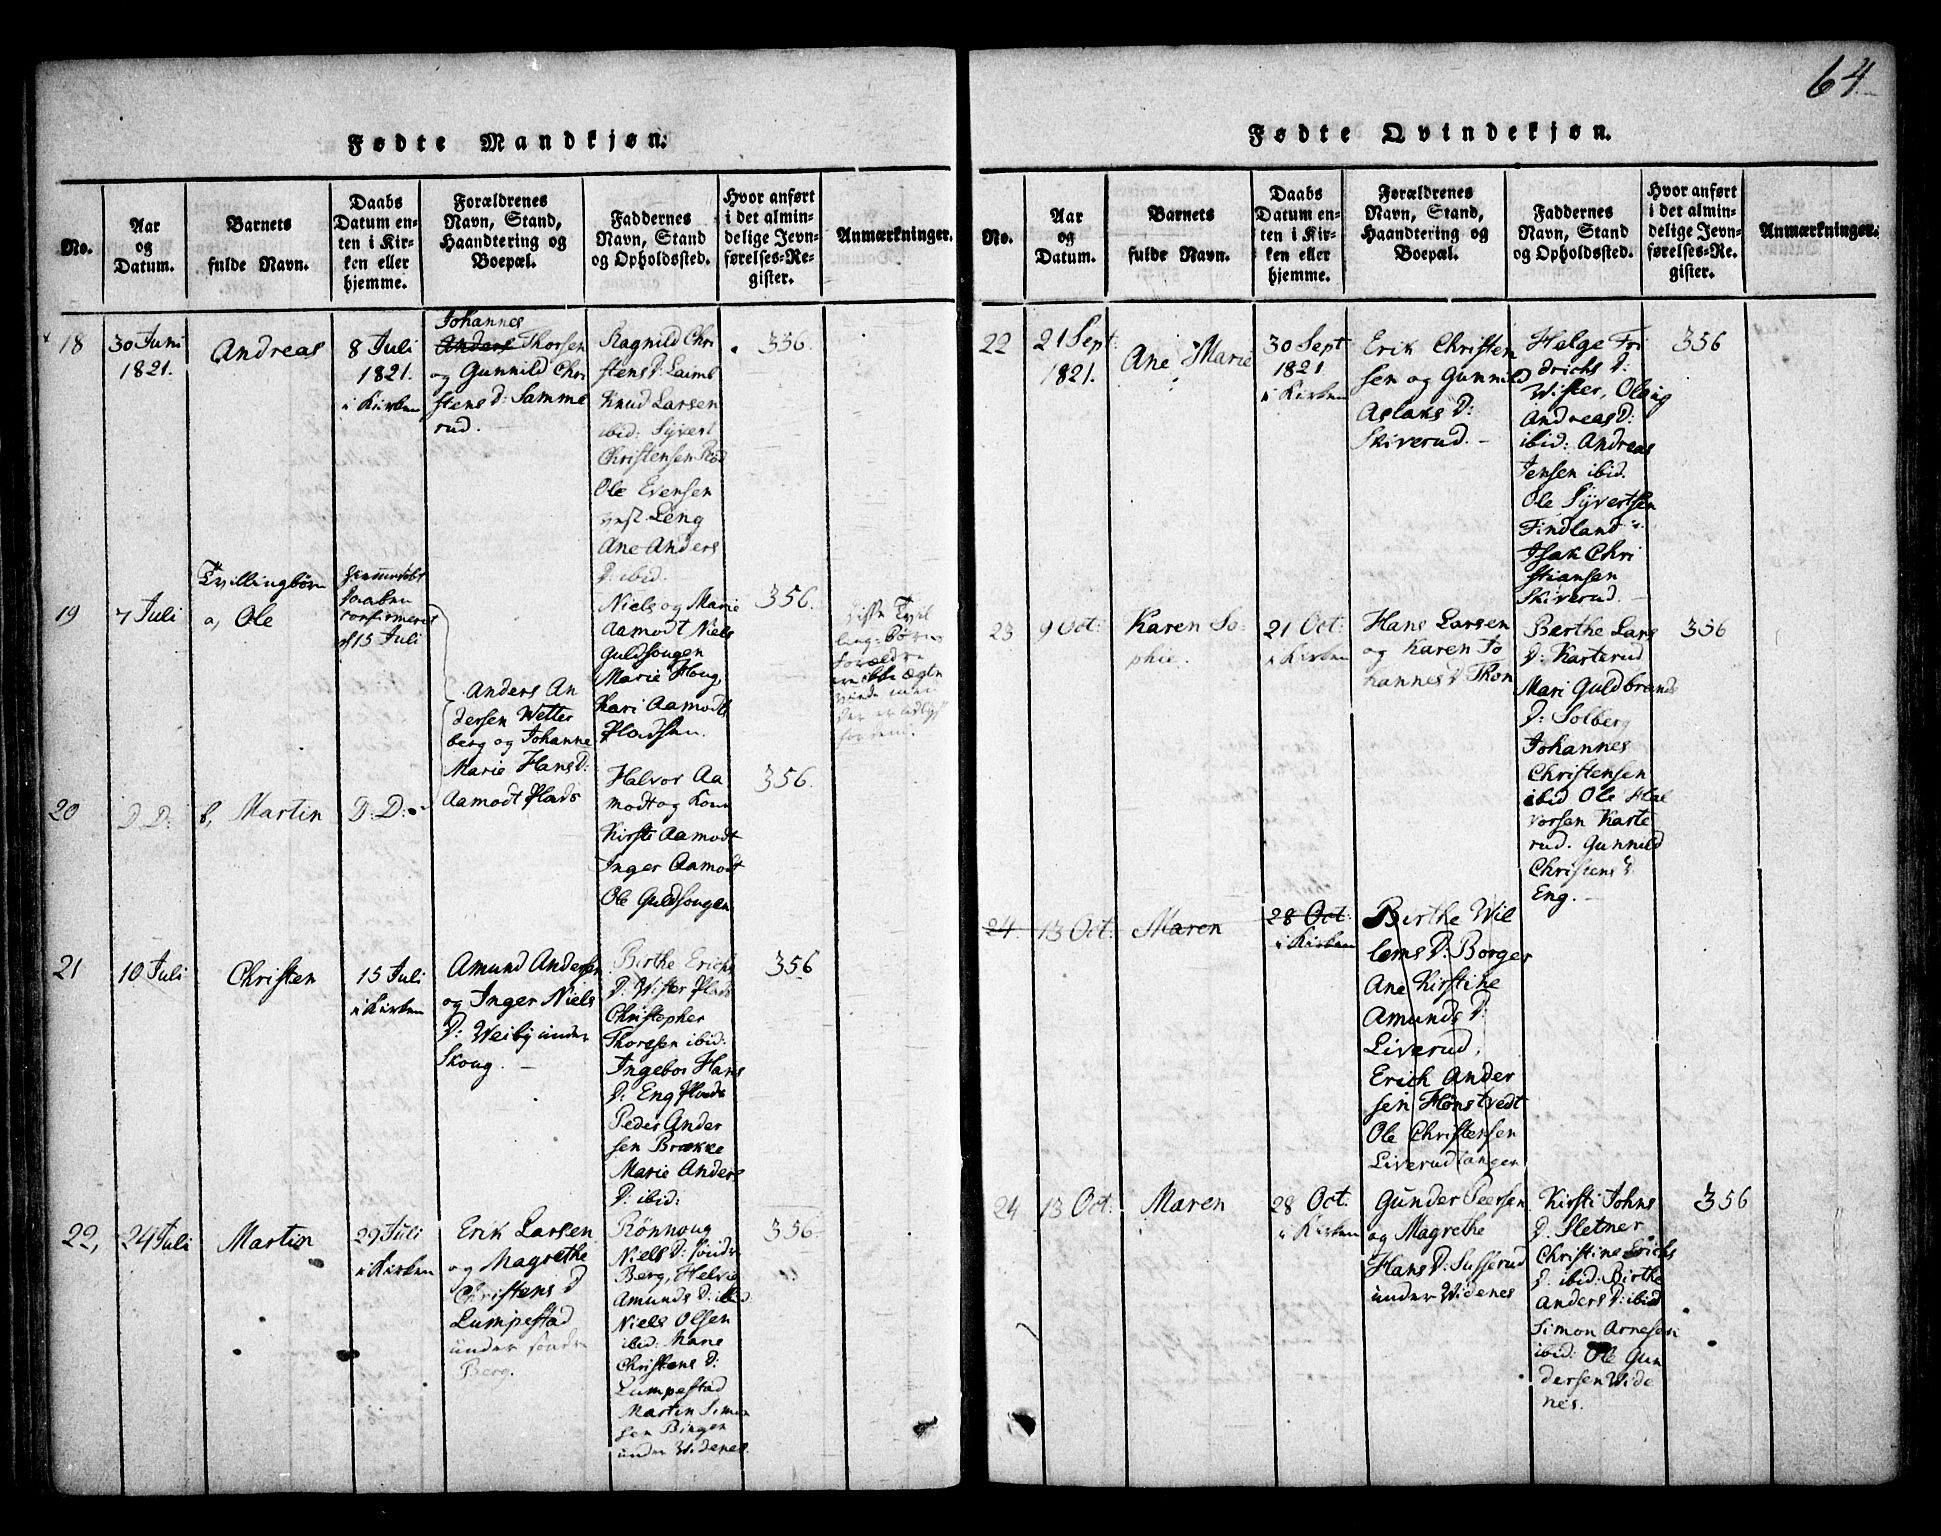 64.
Fødte Mandkjøn.
No.
Aar
og
Datum.
Barnets
fulde Navn.
Daabs
Datum en-
ten i Kir-
ken eller
hjemme.
Forældrenes
Navn, Stand,
Haandtering og
Boepæl.
Faddernes
Navn, Stand
og Opholdssted.
Hvor anført
i det almin-
delige Jevn-
førelses-Re-
gister.
Anmærkninger.
18
30 Juni
1821.
Andreas
8 Juli
1821.
i Kirken
Johannes
Anders Thorsen
og Gunnild Chri
stens D: Samme
rud.
Ragnild Chri
stens D:
Knud Larsen
ibid: Syvert
Christensen
Ole Evensen
Eng
Ane Anders
D: ibid.
356.
19
7 Juli
Tvillingbørn
a, Ole
Hjemmedøbt
Daaben
confirmeret
15 Juli
Anders An
dersen Wetter
berg og Johanne
Marie Hans D:
Aamodt Plads
Niels og Marie
Aamodt Niels
Guldsougen
Marie Houg,
Kari Aamodt
Pladsen.
356.
Disse Tvil
ling-Børns
Forældre
ere ikke ægte
20
D. D:
b, Martin
D: D:
Halvor Aa
modt og Kone
Kirsti Aamodt
Inger Aamodt
Ole Guldsougen
356.
21
10 Juli
Christen
15 Juli
i Kirken
Amund Andersen
og Inger Niels
D: Weiby under
Skoug.
Birthe Erichs
D: Wister Plads
Christopher
Thoresen ibid:
Ingebor Hans
D: Eng Plads
Peder Ander
sen Brække
Marie Anders
D: ibid:
356
22,
24 Juli
Martin
29 Juli
i Kirken
Erik Larsen
og Magrethe
Christens D
Lumpestad
under søndre
Berg.
Rønnoug
Niels D: søndr
Berg, Helvie
Amunds D: ibid
Niels Olsen
ibid: Mane
Christens D:
Lumpestad
Martin Simon
sen Bingen
under Widenes.
356.
Fødte Qvindekjøn.
No.
Aar
og
Datum.
Barnets
fulde Navn.
Daabs
Datum en-
ten i Kir-
ken eller
hjemme.
Forældrenes
Navn, Stand,
Haandtering og
Boepæl.
Faddernes
Navn, Stand
og Opholdssted.
Hvor anført
i det almin-
delige Jevn-
førelses-Re-
gister.
Anmærkninger.
22
21 Sept:
1821.
Ane Marie
30 Sept
1821
i Kirken
Erik Christen
sen og Gunnild
Aslaks D:
Skiverud.
Helge Fri
drichs D:
Wister, Oloug
Andreas D:
ibid: Andreas
Jensen ibid.
Ole Syvertsen
Findland
Isak Chri
stiansen
Skiverud.
356
23
9 Oct:
Karen So-
phie.
21 Oct:
i Kirken
Hans Larsen
og Karen Jo
hannes D Thon
Berthe Lars
D: Karterud
Mari Guldbrands
D: Solberg
Johannes
Christensen
ibid Ole Hal
vorsen Karte
rud. Gunnild
Christens D
Eng.
356
24.
13 Oct:
Maren
28 Oct:
i Kirken
Birthe Wil
lems D: Borger
Ane Kirstine
Amunds D:
Liverud,
Erich Ander
sen Hønstvedt
Ole Christensen
Liverudtangen
24
13 Oct:
Maren
28 Oct:
i Kirken
Gunder Peersen
og Magrethe
Hans D: Susserud
under Widenes
Kirsti Johns
D. Sletner
Christine Erichs
D: ibid: Birthe
Anders D: ibid
Simon Arnesen
ibid: Ole Gun
dersen Wide
nes.
356